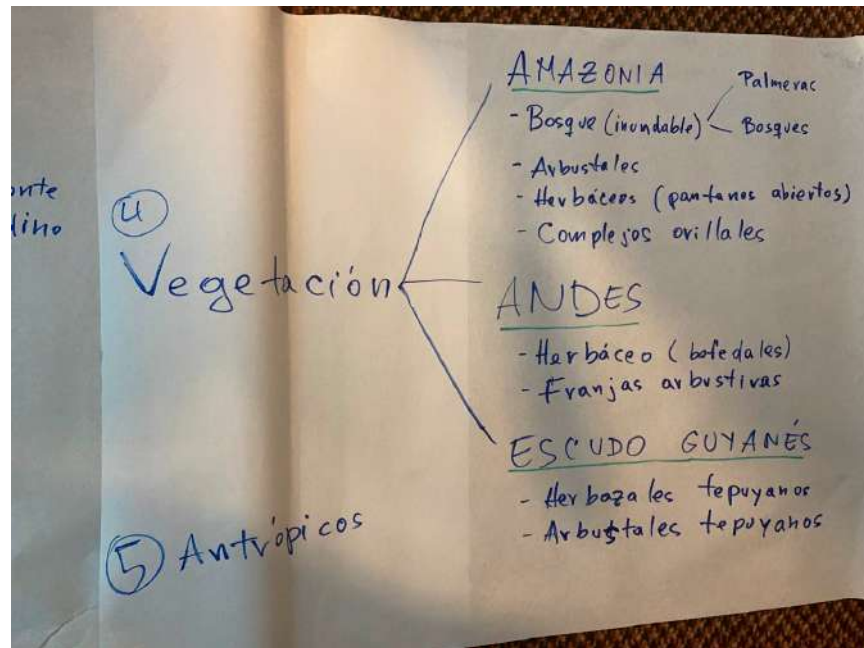 AMAZONIA
- Bosque (inundable)
Palmeras
Bosques
- Arbustales
- Herbáceos (pantanos abiertos)
- Complejos orillales
④
Vegetación
ANDES
- Herbáceo (bofedales)
- Franjas arbustivas
ESCUDO GUYANÉS
- Herbazales tepuyanos
- Arbustales tepuyanos
⑤ Antrópicos